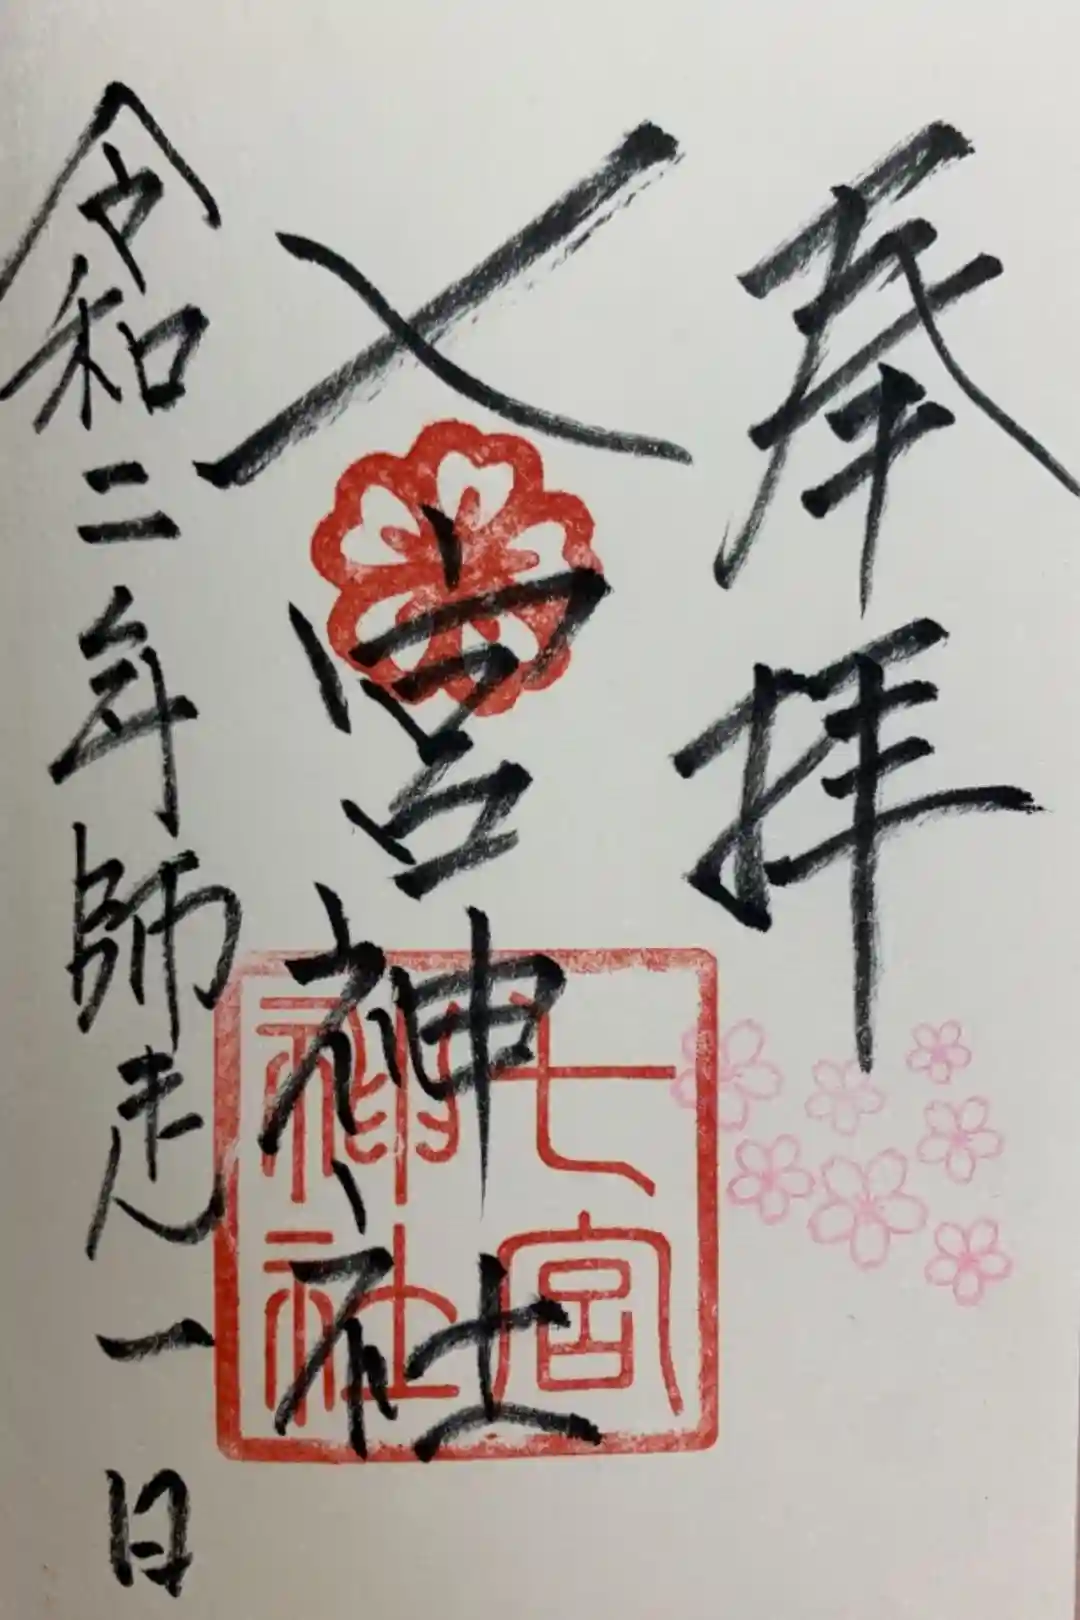 奉拝
七宮神社
七宮
神社
令和二年師走一日